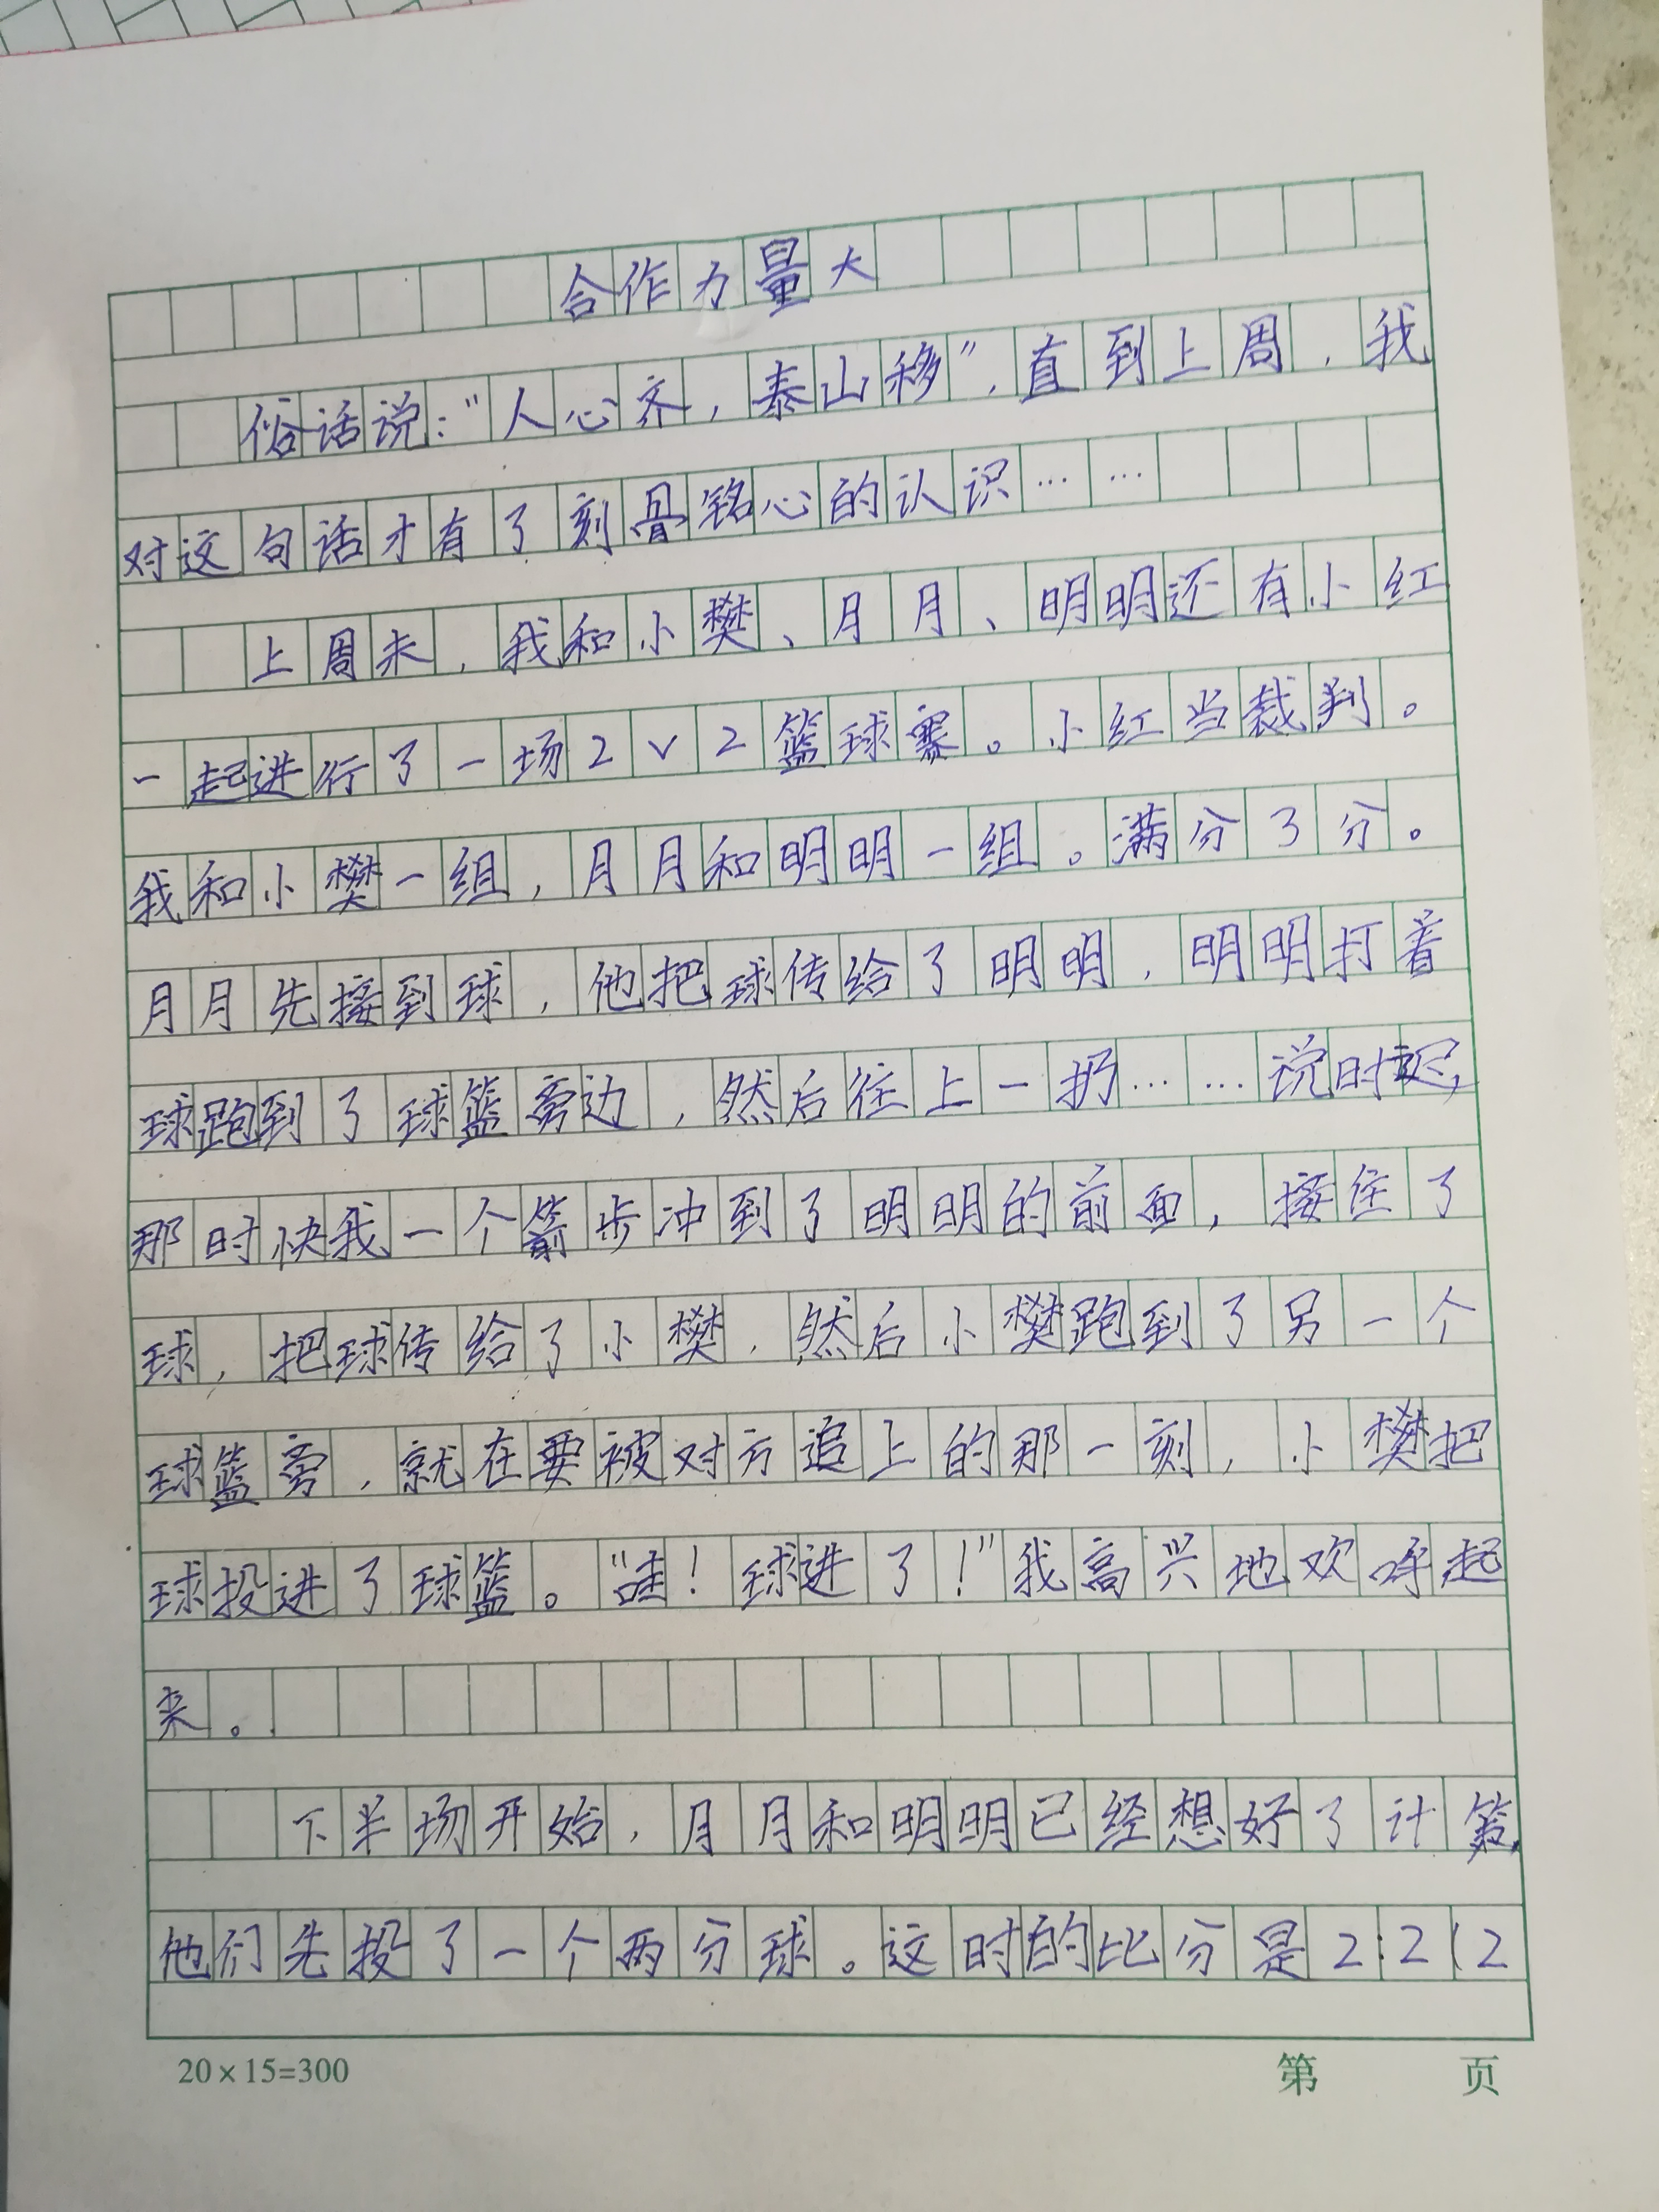 合作力量大
俗话说:“人心齐,泰山移”,直到上周,我
对这句话才有了刻骨铭心的认识……
上周末,我和小樊、月月、明明还有小红
一起进行了一场2v2篮球赛。小红当裁判。
我和小樊一组,月月和明明一组。满分3分。
月月先接到球,他把球传给了明明,明明打着
球跑到了球篮旁边,然后往上一扔……说时迟,
那时快我一个箭步冲到了明明的前面,接住了
球,把球传给了小樊,然后小樊跑到了另一个
球篮旁,就在要被对方追上的那一刻,小樊把
球投进了球篮。“哇!球进了!”我高兴地欢呼起
来。
下半场开始,月月和明明已经想好了计策,
他们先投了一个两分球。这时的比分是2:2(2
20×15=300
第 页